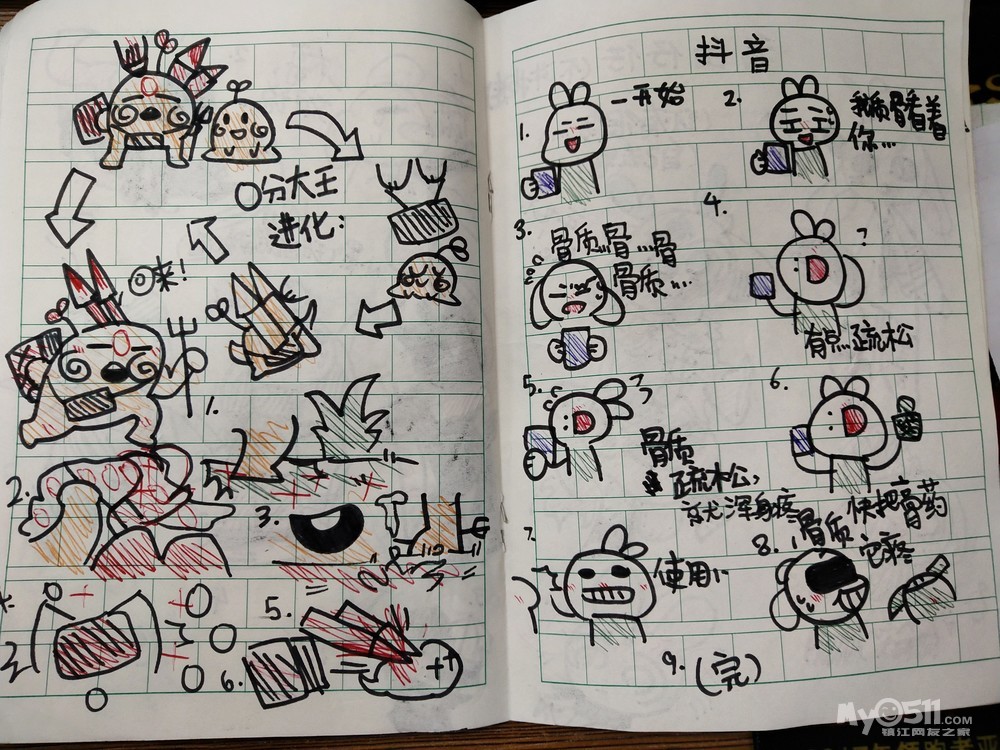 〇分大王
进化:
@来!
1.
2.
3.
5.
6.
抖音
1.
一开始
2.
我质骨看着
你...
3.
骨质..骨...骨
骨质...
4.
?
有点疏松
5.
骨质
疏松,
就浑身疼
6.
快把骨药
7.
使用
8.
骨质
它疼
9.
(完)
My0511.COM
镇江网友之家